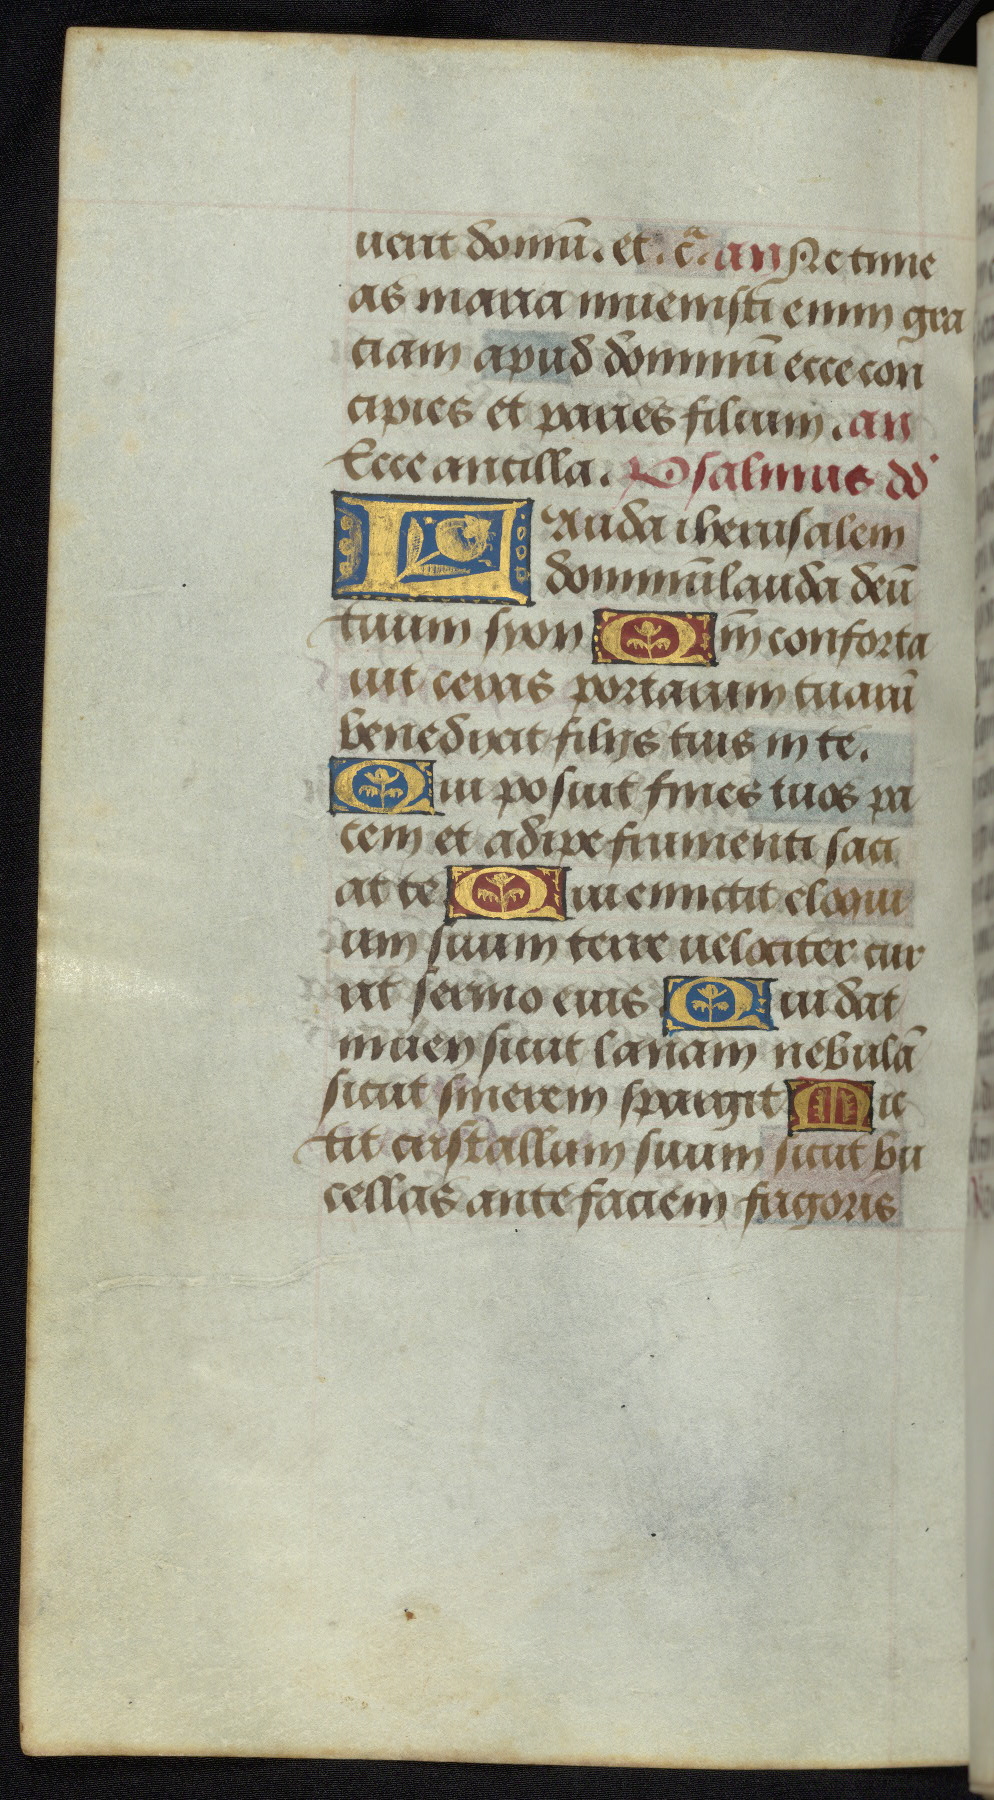 uerit domū. et. c̄. an Ne time
as maria inuenisti enim gra
tiam apud dominū ecce con
cipies et paries filium. an
Ecce ancilla. Psalmus dd
LAuda iherusalem
dominū lauda deū
tuum syon Qm̄ conforta
uit ceras portarum tuarū
benedixit filijs tuis in te.
Qui posuit fines tuos pa
cem et adipe frumenti saci
at te Qui emictit eloqui
um suum terre uelociter cur
rit sermo eius Qui dat
niuen sicut lanam nebulā
sicut sinerem spargit Mic
tit cristallum suum sicut bu
cellas ante faciem frigoris